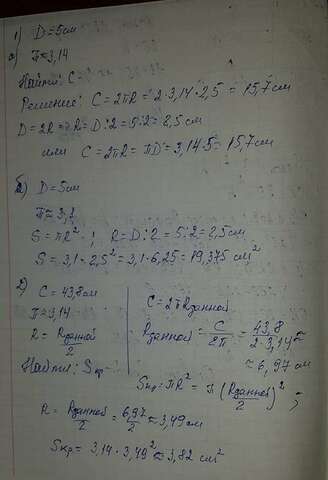 1) D=5см
а) π≈3,14
Найти: C-?
Решение: C=2πR=2·3,14·2,5=15,7см
D=2R⇒R=D:2=5:2=2,5см
или C=2πR=πD=3,14·5=15,7см
б) D=5см
π≈3,1
S=πR²; R=D:2=5:2=2,5см
S=3,1·2,5²=3,1·6,25=19,375 см²
2) C=43,8см
π≈3,14
R=Rданной/2
Найти: Sкр-
C=2πRданной
Rданной=C/2π=43,8/2·3,14≈
≈6,97см
Sкр=πR²=π(Rданной/2)²;
R=Rданной/2=6,97/2≈3,49см
Sкр=3,14·3,49²≈3,82см²